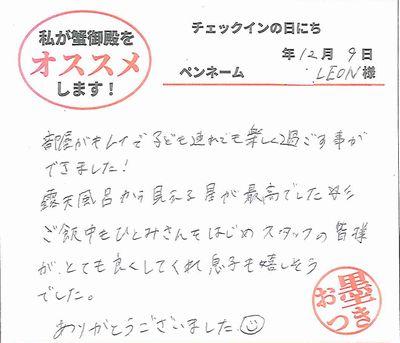 私が蟹御殿を
オススメ
します！
チェックインの日にち
年12月9日
ペンネーム LEON様
部屋がキレイで子ども連れでも楽しく過ごす事が
できました！
露天風呂から見える星が最高でした
ご飯中もひとみさんをはじめスタッフの皆様
が、とても良くしてくれ息子も嬉しそう
でした。
ありがとうございました
お墨つき